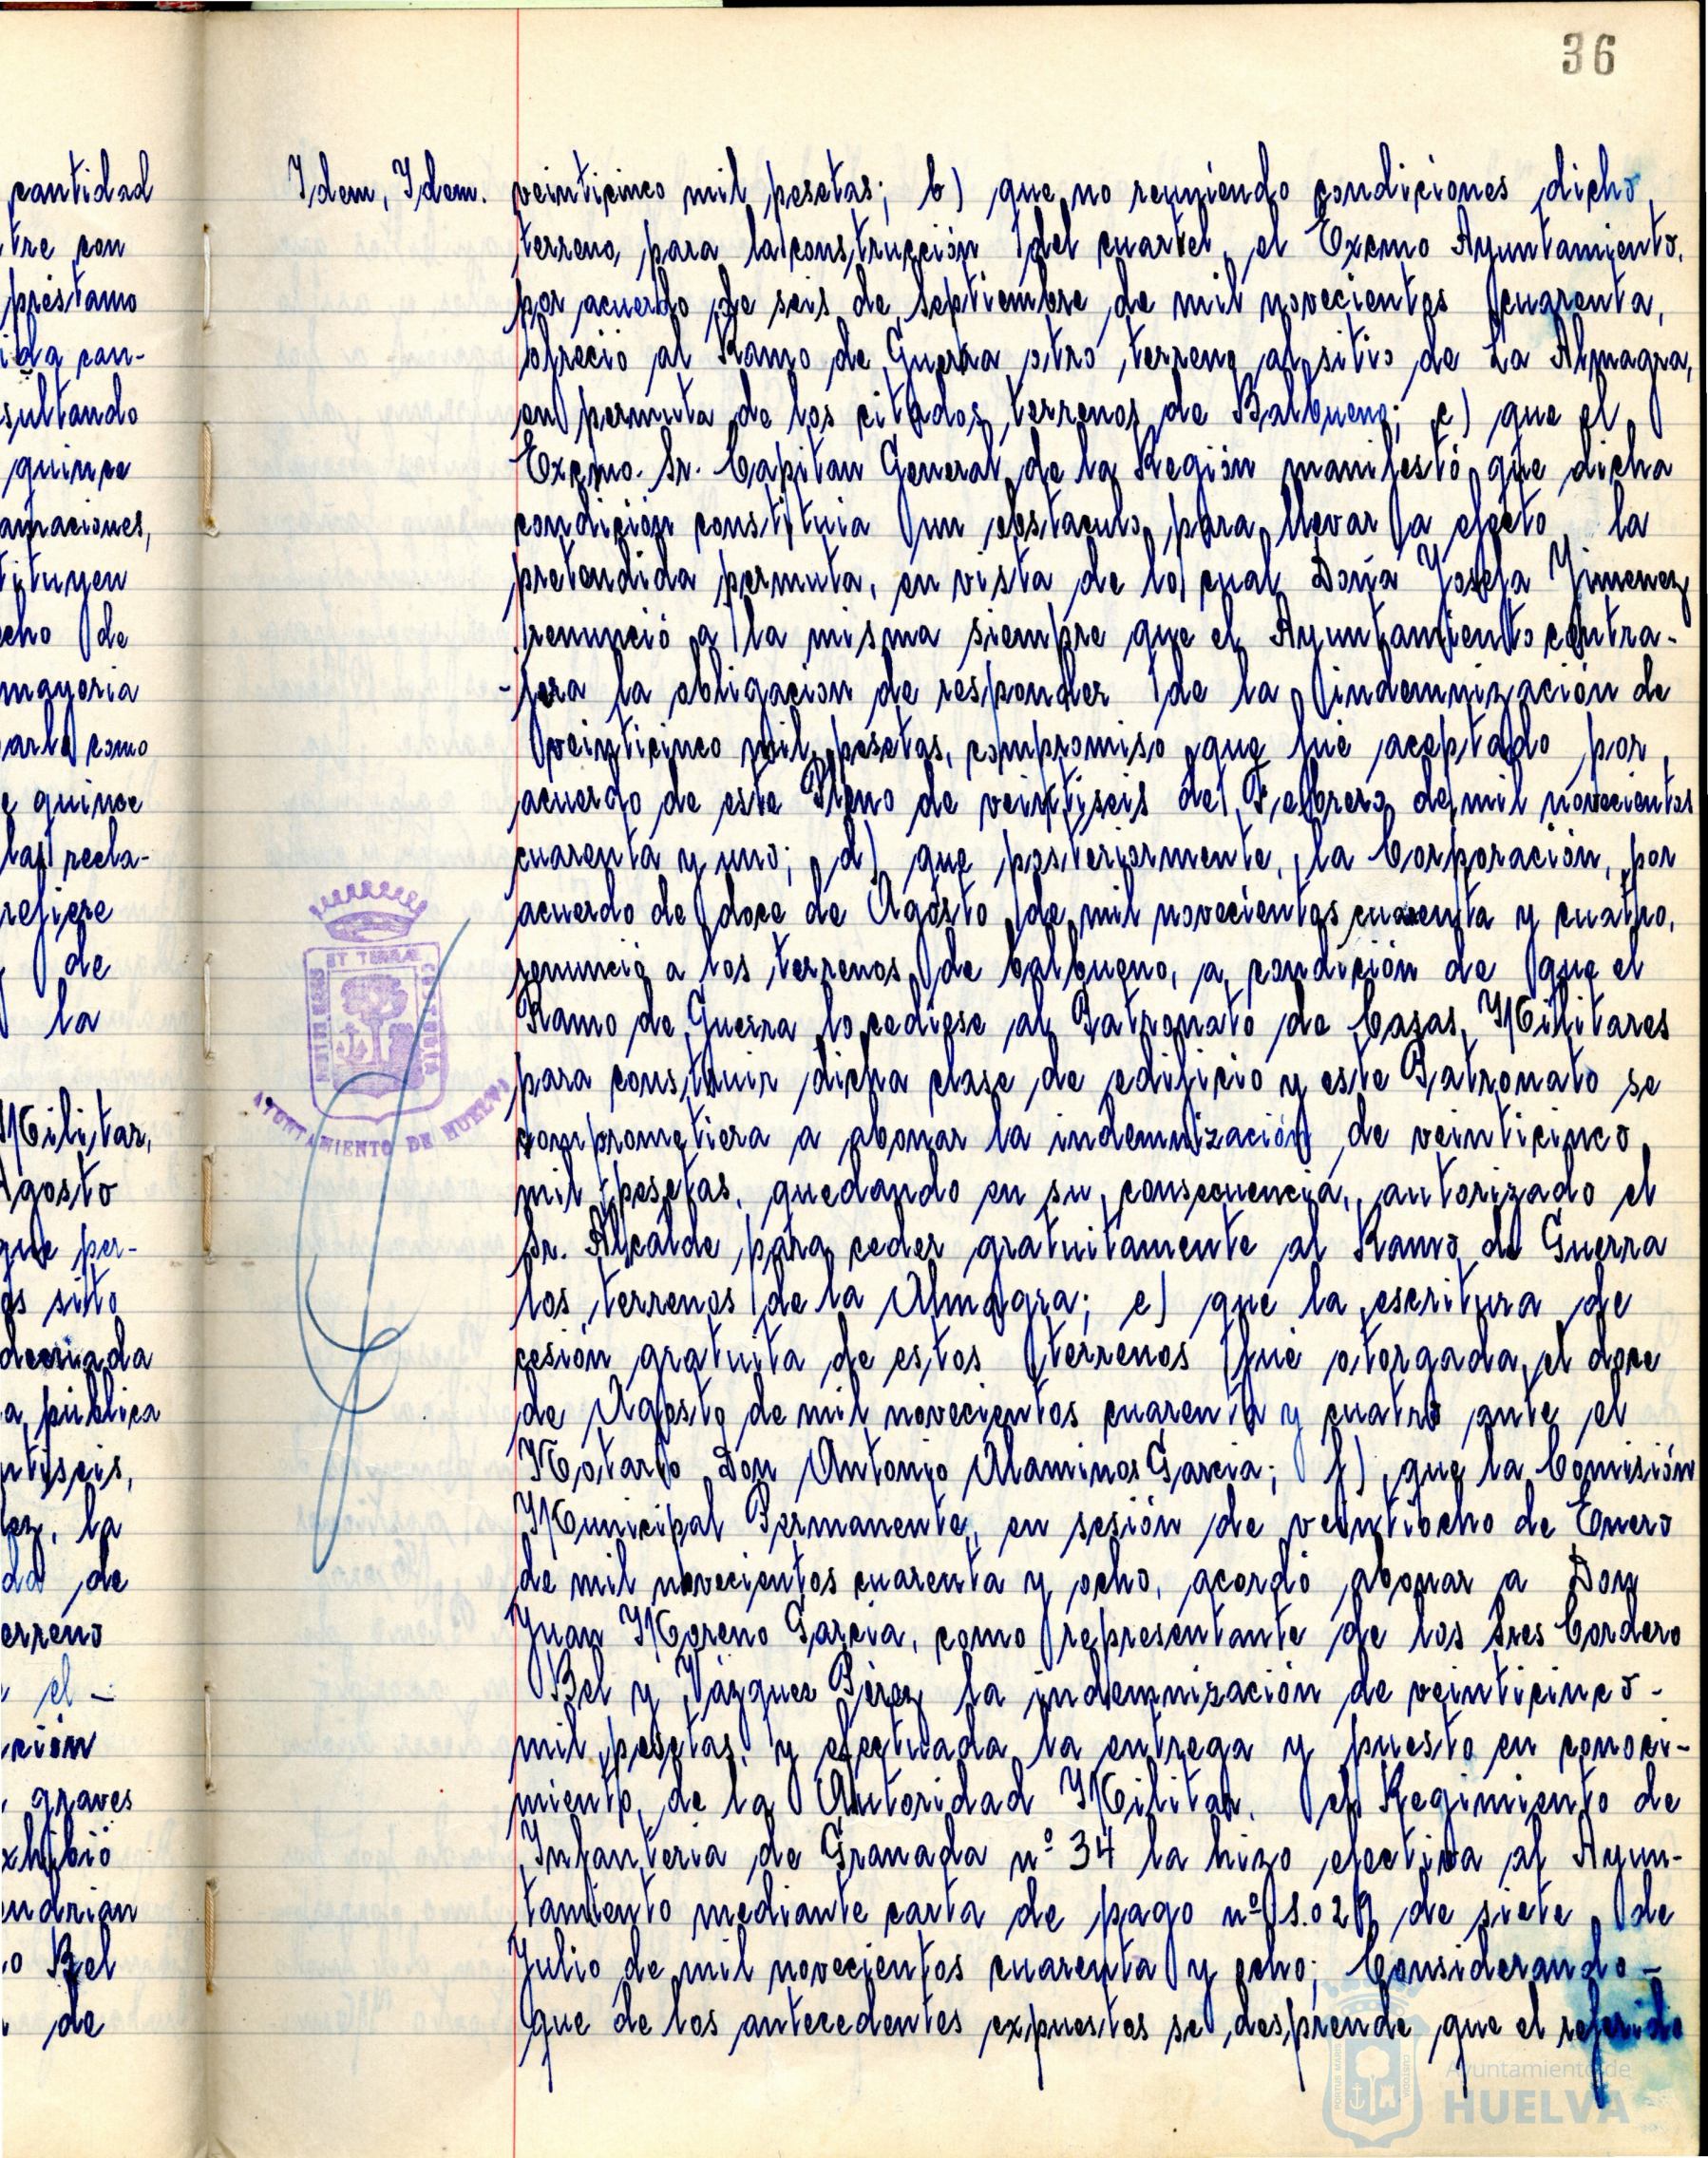 36
cantidad
tre con
préstamo
ida can-
sultando
quince
amaciones,
tituyen
echo de
mayoria
arla como
e quince
las recla-
refiere
de
la
Militar,
Agosto
que per-
os sito
derivada
a pública
ntiseis,
ez, la
da de
erreno
el -
ción
graves
xhibió
endrian
o Bel
de
Idem, Idem.
veinticinco mil pesetas; b) que no reuniendo condiciones dicho
terreno, para la construcción del cuartel, el Excmo Ayuntamiento,
por acuerdo de seis de septiembre de mil novecientos cuarenta,
ofreció al Ramo de Guerra otro terreno al sitio de La Almagra,
en permuta de los citados terrenos de Balbueno; c) que el
Excmo. Sr. Capitan General de la Región manifestó que dicha
condición constituia un obstaculo para llevar a efecto la
pretendida permuta, en vista de lo cual Doña Josefa Jimenez
renunció a la misma siempre que el Ayuntamiento contra-
-jera la obligación de responder de la indemnización de
veinticinco mil pesetas, compromiso que fué aceptado por
acuerdo de este Pleno de veintiseis de Febrero de mil novecientos
cuarenta y uno; d) que posteriormente, la Corporación, por
acuerdo de doce de Agosto de mil novecientos cuarenta y cuatro,
renunció a los terrenos de balbueno, a condición de que el
Ramo de Guerra lo cediese al Patronato de Casas Militares
para construir dicha clase de edificio y este Patronato se
comprometiera a abonar la indemnización de veinticinco
mil pesetas, quedando en su consecuencia, autorizado el
Sr. Alcalde para ceder gratuitamente al Ramo de Guerra
los terrenos de la Almagra; e) que la escritura de
cesión gratuita de estos terrenos fué otorgada el doce
de Agosto de mil novecientos cuarenta y cuatro ante el
Notario Don Antonio Alaminos Garcia; f) que la Comisión
Municipal Permanente, en sesión de veintiocho de Enero
de mil novecientos cuarenta y ocho, acordó abonar a Don
Juan Moreno Garcia, como representante de los Sres Cordero
Bel y Vázquez Pérez la indemnización de veinticinco-
mil pesetas, y efectuada la entrega y puesto en conoci-
miento de la Autoridad Militar, el Regimiento de
Infanteria de Granada nº 34 la hizo efectiva al Ayun-
tamiento mediante carta de pago nº de siete de
Julio de mil novecientos cuarenta y ocho; Considerando-
que de los antecedentes expuestos se desprende que el referido
ET TERRAE
AYUNTAMIENTO DE HUELVA
PORTUS MARIS
CUSTODIA
Ayuntamiento de
HUELVA